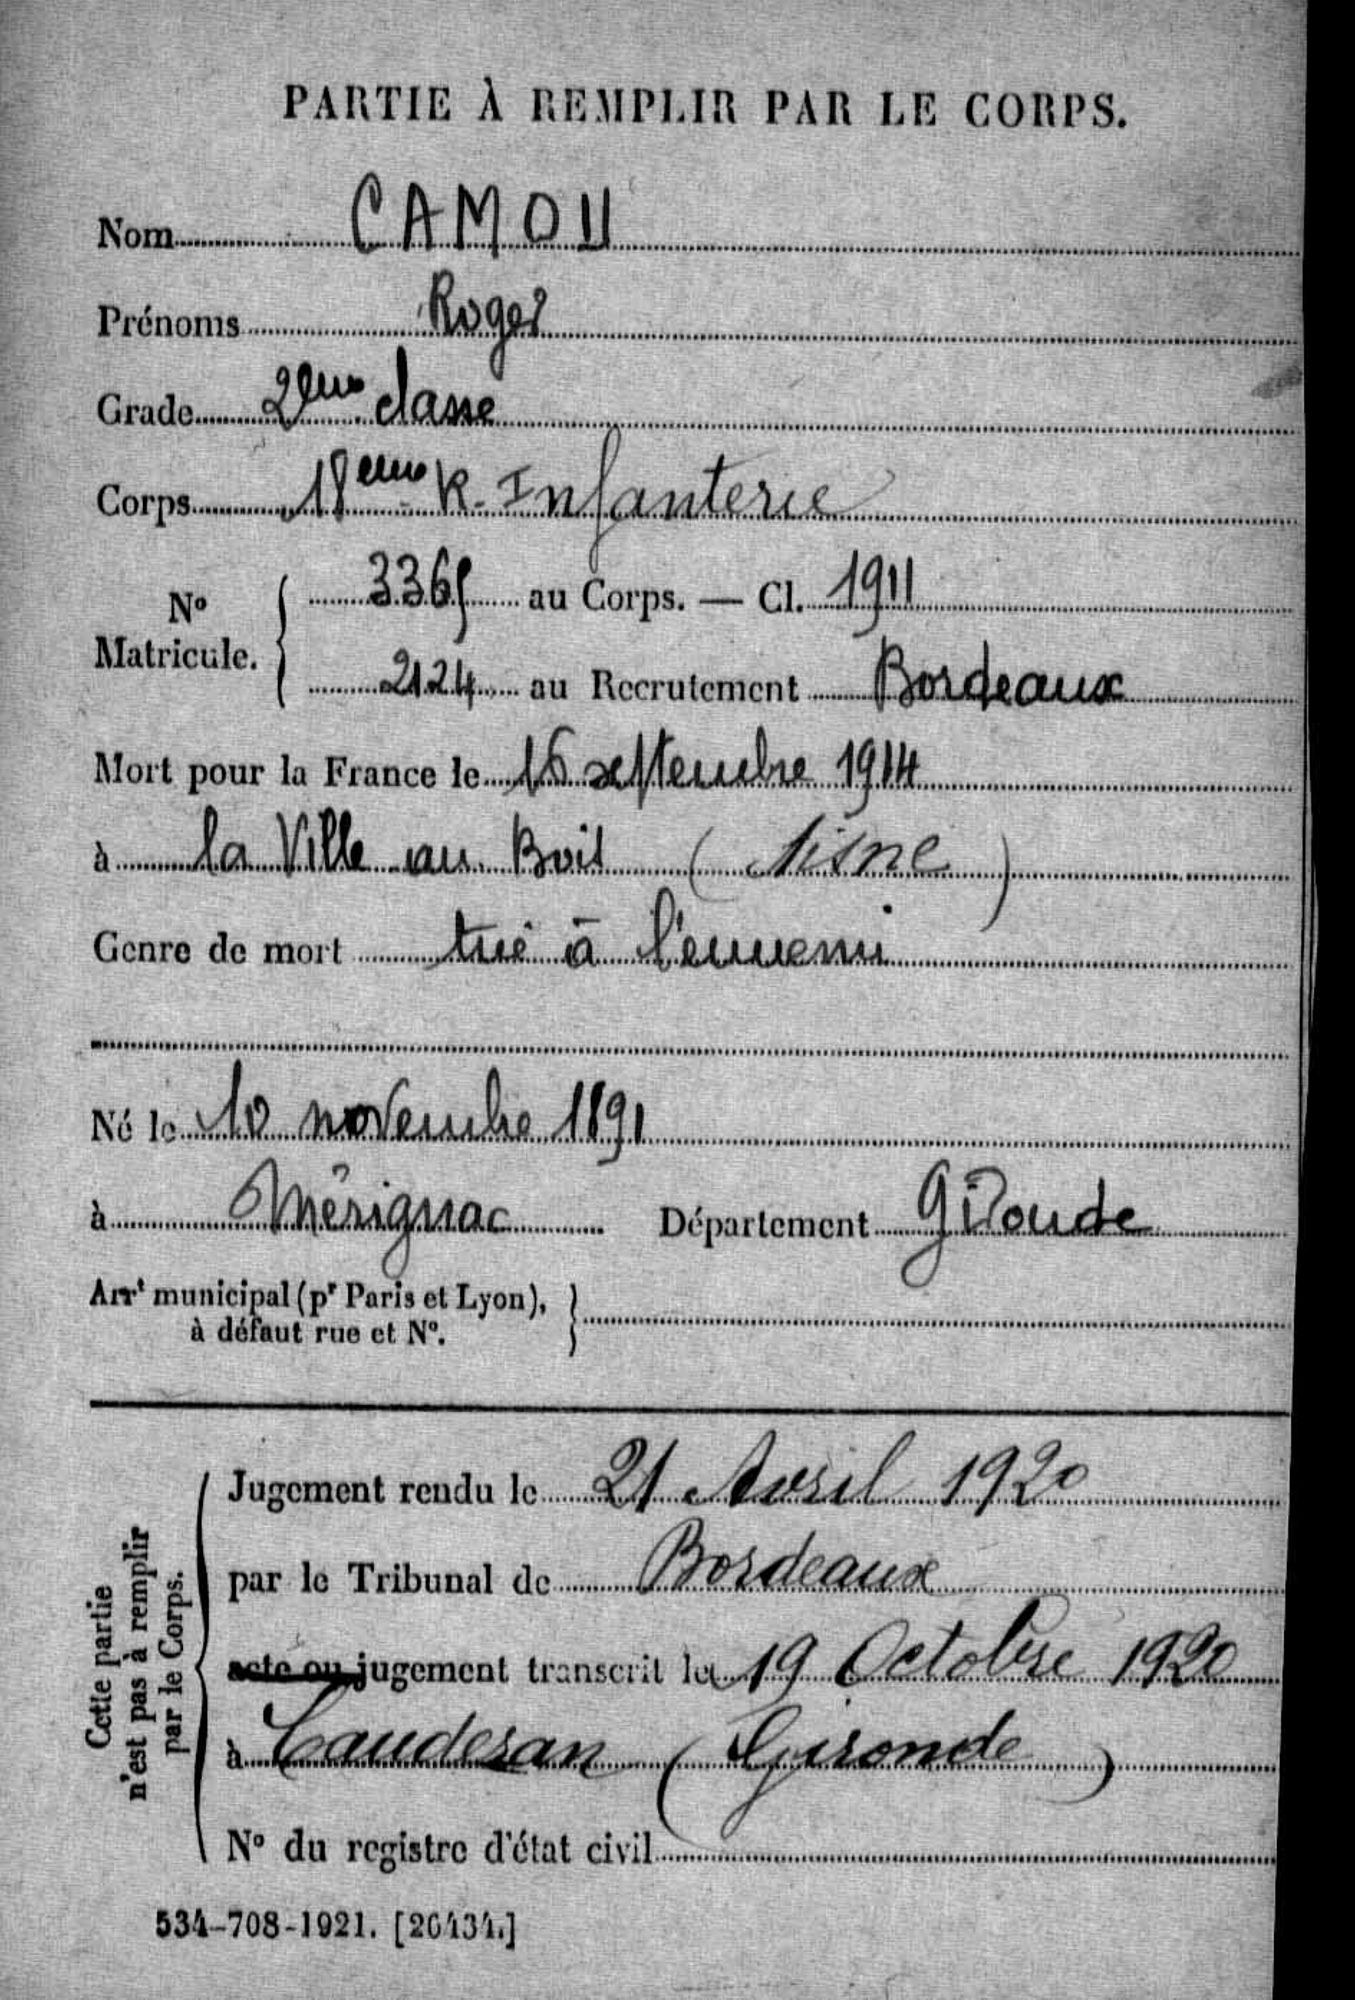 PARTIE À REMPLIR PAR LE CORPS.
Nom CAMOU
Prénoms Roger
Grade 2ème classe
Corps 18ème R. Infanterie
N° Matricule.
3365 au Corps. — Cl. 1911
2124 au Recrutement Bordeaux
Mort pour la France le 16 septembre 1914
à la Ville au Bois (Aisne)
Genre de mort tué à l'ennemi
Né le 10 novembre 1891
à Mérignac Département Gironde
Arrt municipal (pr Paris et Lyon),
à défaut rue et N°.
Cette partie
n'est pas à remplir
par le Corps.
Jugement rendu le 21 Avril 1920
par le Tribunal de Bordeaux
acte ou jugement transcrit le 19 Octobre 1920
à Caudéran (Gironde)
N° du registre d'état civil
534-708-1921. [26434.]